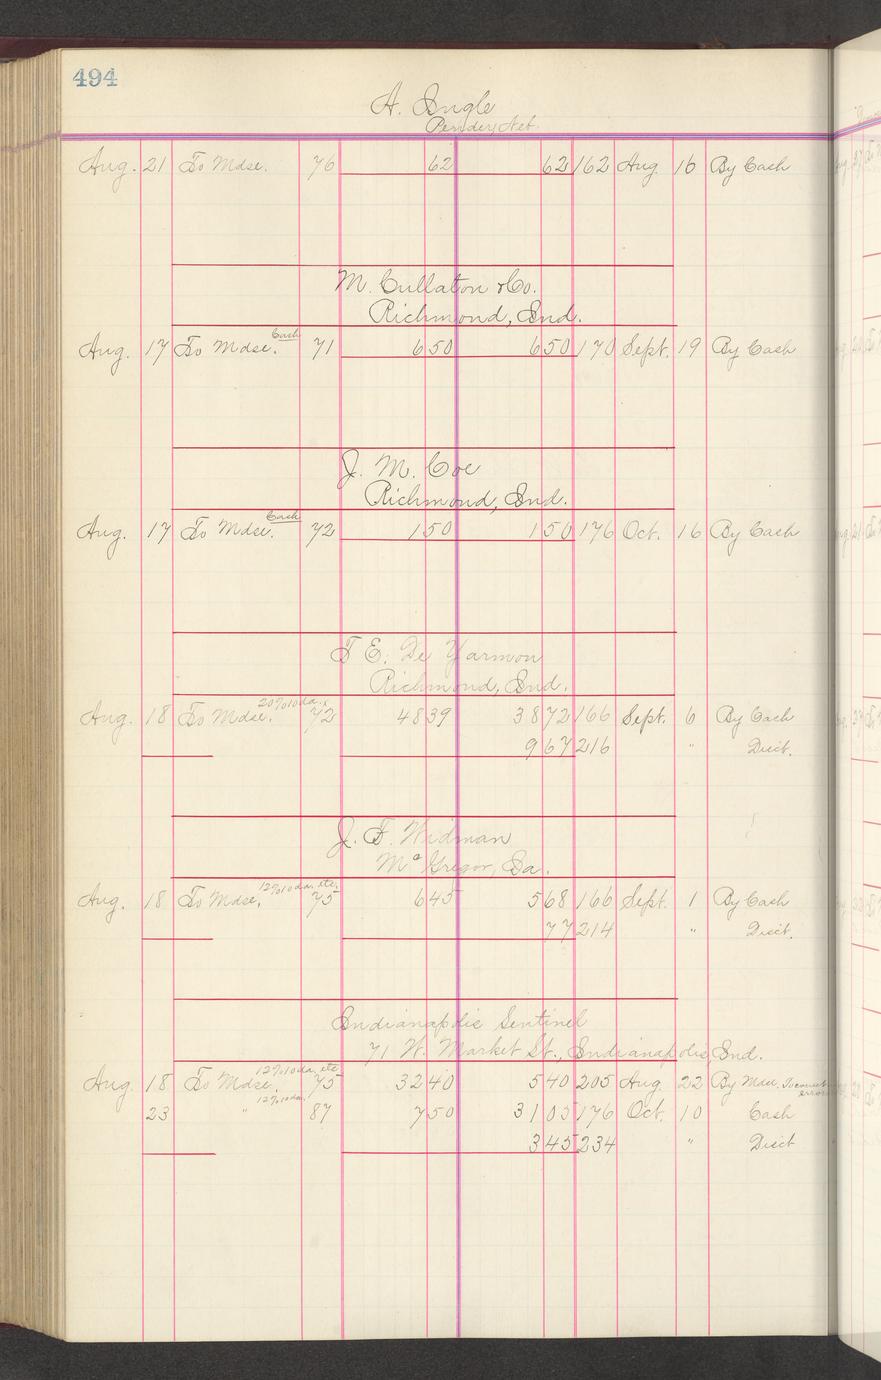 494
A. Ingle
Pender, Neb.
Aug. 21 To Mdse. 76 62 62 162 Aug 16 By Cash
M. Cullaton & Co.
Richmond, Ind.
Aug. 17 To Mdse. Cash 71 6 50 6 50 170 Sept. 19 By Cash
J. M. Coe
Richmond, Ind.
Aug. 17 To Mdse. Cash 72 1 50 1 50 176 Oct. 16 By Cash
T. E. De Yarmon
Richmond, Ind.
Aug. 18 To Mdse. 20% 10 da. 72 48 39 38 72 166 Sept. 6 By Cash
9 67 216 " Disct.
J. F. Widman
McGregor, Ia.
Aug. 18 To Mdse. 12% 10 da. etc. 75 6 45 5 68 166 Sept. 1 By Cash
77 214 " Disct.
Indianapolis Sentinel
71 W. Market St., Indianapolis, Ind.
Aug. 18 To Mdse. 12% 10 da. etc. 75 32 40 5 40 205 Aug. 22 By Mdse. To correct error
23 " 12% 10 da. 87 7 50 31 05 176 Oct. 10 Cash
3 45 234 " Disct